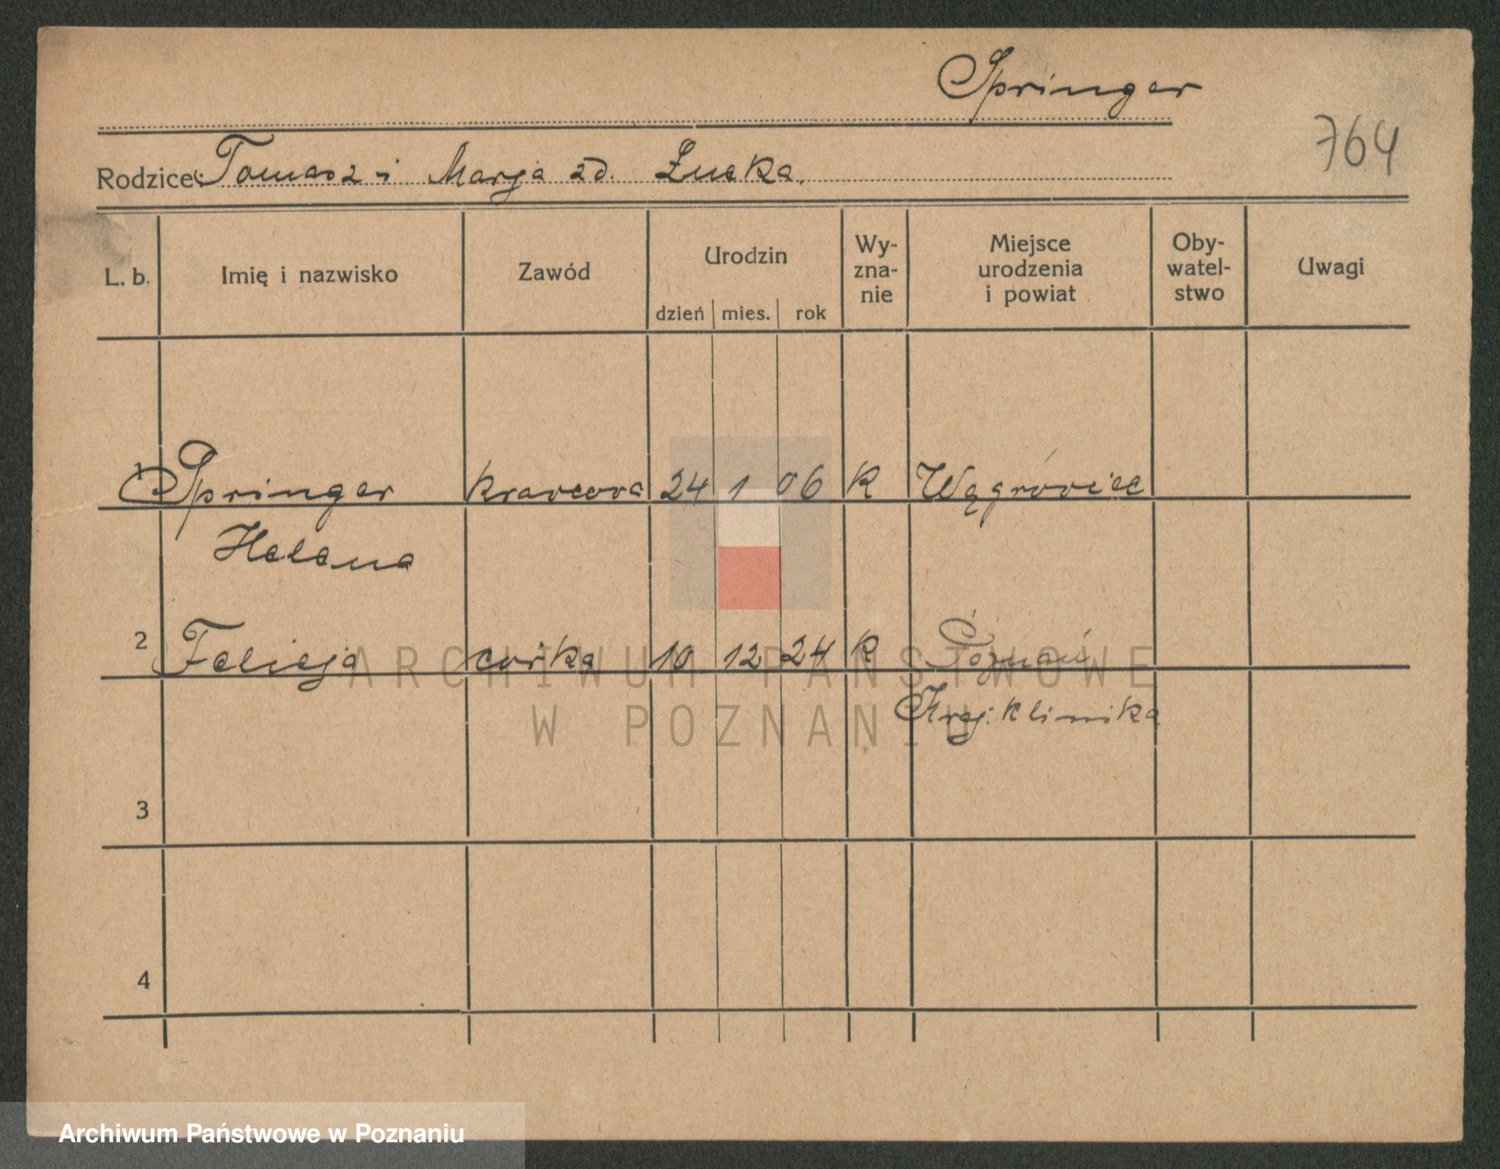 Springer
764
Rodzice: Tomasz i Marja zd. Żucka.
L. b. Imię i nazwisko Zawód Urodzin dzień mies. rok Wy-zna-nie Miejsce urodzenia i powiat Oby-watel-stwo Uwagi
1 Springer krawcowa 24 1 06 K Wągrówiec
Helena
2 Felicja córka 10 12 24 K Poznań
Kraj. Klinika
3
4
ARCHIWUM PAŃSTWOWE
W POZNANIU
Archiwum Państwowe w Poznaniu